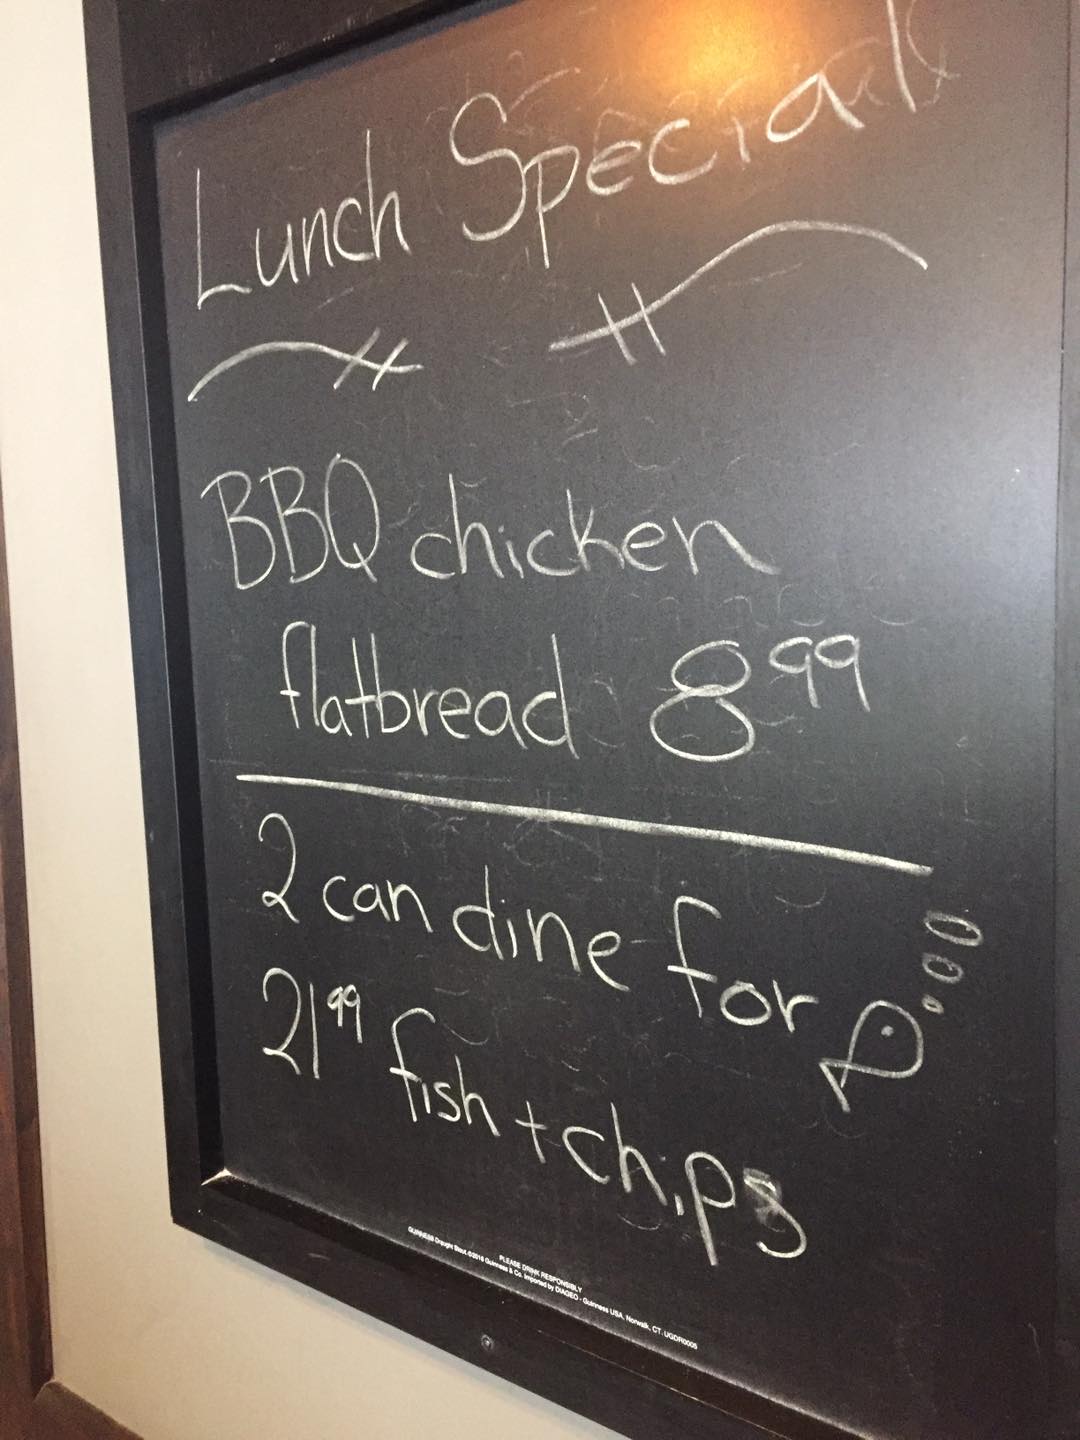 Lunch Specials
BBQ chicken
flatbread 8 99
2 can dine for
21 99 fish + chips
PLEASE DRINK RESPONSIBLY
GUINNESS Draught Stout. ©2016 Guinness & Co. Imported by DIAGEO - Guinness USA, Norwalk, CT. UGDR0005